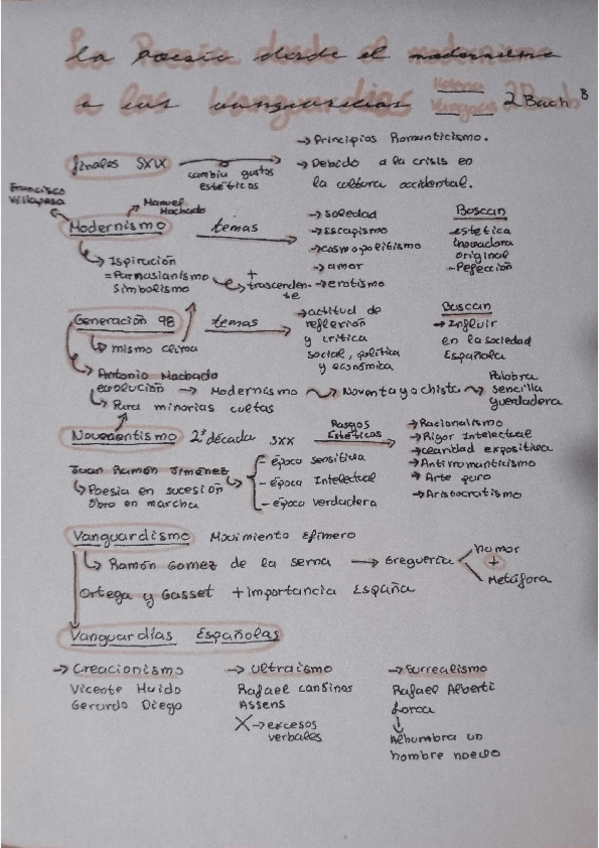 La Poesía desde el modernismo
a las vanguardias 2 Bach B
finales SXIX
cambiu gustos
estéticos
→ Principios Romanticismo.
→ Debido a la crisis en
la cultura occidental.
Francisco
Villaespesa
Manuel
Machado
Modernismo
temas
→ soledad
→ Escapismo
→ cosmopolitismo
→ amor
→ erotismo
Buscan
estetica
Inovadora
original
- Pefección
↳ Ispiración
= Parnasianismo
Simbolismo
+
trascenden-
te
Generación 98
temas
→ actitud de
reflexión
y crítica
social, política
y económica
Buscan
→ Influir
en la sociedad
Española
↳ mismo clima
↳ Antonio Machado
evolución → Modernismo → Noventayochista →
Palabra
sencilla
y verdadera
↳ Para minorías cultas
Novecentismo 2ª década SXX
Rasgos
Estéticos
→ Racionalismo
→ Rigor Intelectual
→ claridad expositiva
→ Antirromanticismo
→ Arte puro
→ Aristocratismo
Juan Ramón Jiménez
↳ Poesia en sucesión
Obra en marcha
- época sensitiva
- época Intelectual
- época verdadera
Vanguardismo Movimiento Efimero
↳ Ramón Gomez de la serna → Greguería
humor
+
Metáfora
Ortega y Gasset + importancia España
Vanguardias Españolas
→ Creacionismo
Vicente Huido
Gerardo Diego
→ Ultraismo
Rafael canSinos
Assens
X → excesos
verbales
→ Surrealismo
Rafael Alberti
Lorca
↓
Alhumbra un
hombre nuevo